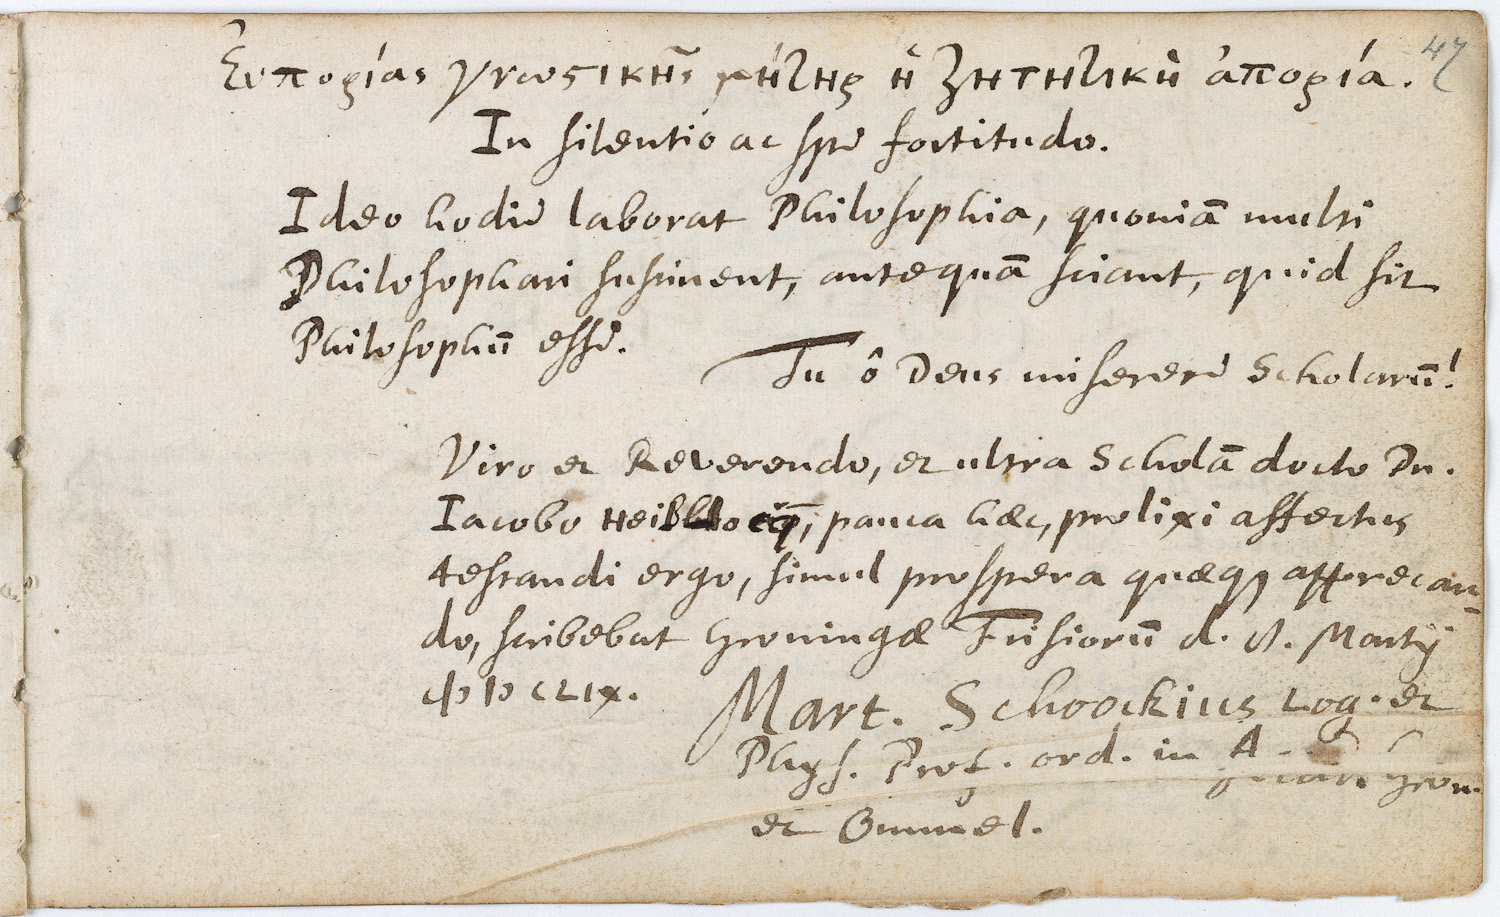 Εὐπορίας γνωστικῆς μήτης ἡ ζητητικὴ ἀπορία.
47
In silentio ac spe fortitudo.
Ideo hodie laborat Philosophia, quoniā multi
Philosophari sustinent, antequā sciant, quid sit
Philosophū esse.
Tu ô Deus miserere Scholarū!
Viro et Reverendo, et ultra Scholā docto Dn.
Iacobo pauca hæc, prolixi affectus
testandi ergo, simul prospera quæq; apprecan-
do, scribebat Groningæ Frisiorū d. Martij
cIɔ Iɔ CLIX.
Mart. Schoockius Log. et
Phys. Prof. ord. in Gron.
et Ommel.